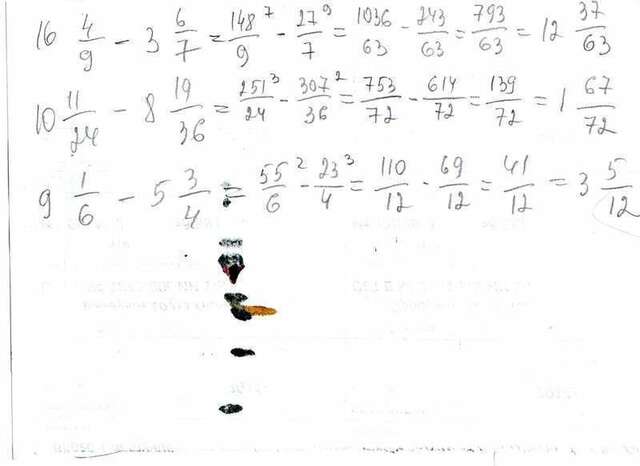 16 4/9 - 3 6/7 = 148/9 ⁷ - 27/7 ⁹ = 1036/63 - 243/63 = 793/63 = 12 37/63
10 11/24 - 8 19/36 = 251/24 ³ - 307/36 ² = 753/72 - 614/72 = 139/72 = 1 67/72
9 1/6 - 5 3/4 = 55/6 ² - 23/4 ³ = 110/12 - 69/12 = 41/12 = 3 5/12